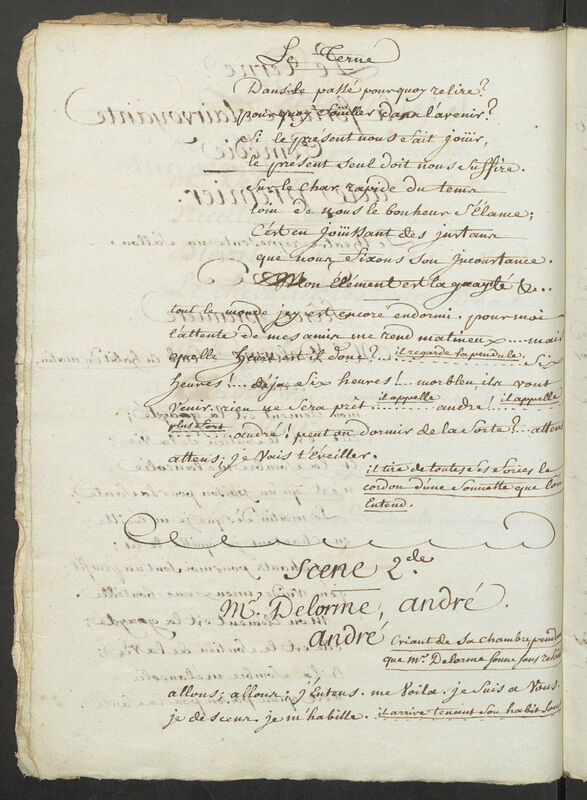 Le Terne
Dans le passé pourquoy relire?
pourquoy fouiller dans l'avenir?
Si le present nous fait joüir,
le présent seul doit nous suffire.
Sur le char rapide du tems
loin de nous le bonheur s'élance;
C'est en joüissant des instans
que nous fixons son Inconstance.
Mon élément est la gayté &..
tout le monde jcy est encoré endormi. pour moi
l'attente de mes amis me rend matineux .... mais
quelle heure est il donc? .... il regarde sa pendule. Six
heures!... déja six heures!... morbleu ils vont
Venir. rien ne sera prêt .... il appelle andré! il appelle
plus fort .... andré! peut on dormir de la sorte? .. attens
attens; je vais t'éveiller.
il tire de toutes ses forces le
cordon d'une sonnette que l'on
Entend.
Scene 2.de
Mr. Delorme, andré.
andré criant de sa chambre pend
que mr. Delorme sonne sans relâ
allons; allons; j'Entens. me Voila. je suis a Vous.
je descens. je m'habille. il arrive tenant son habit sous